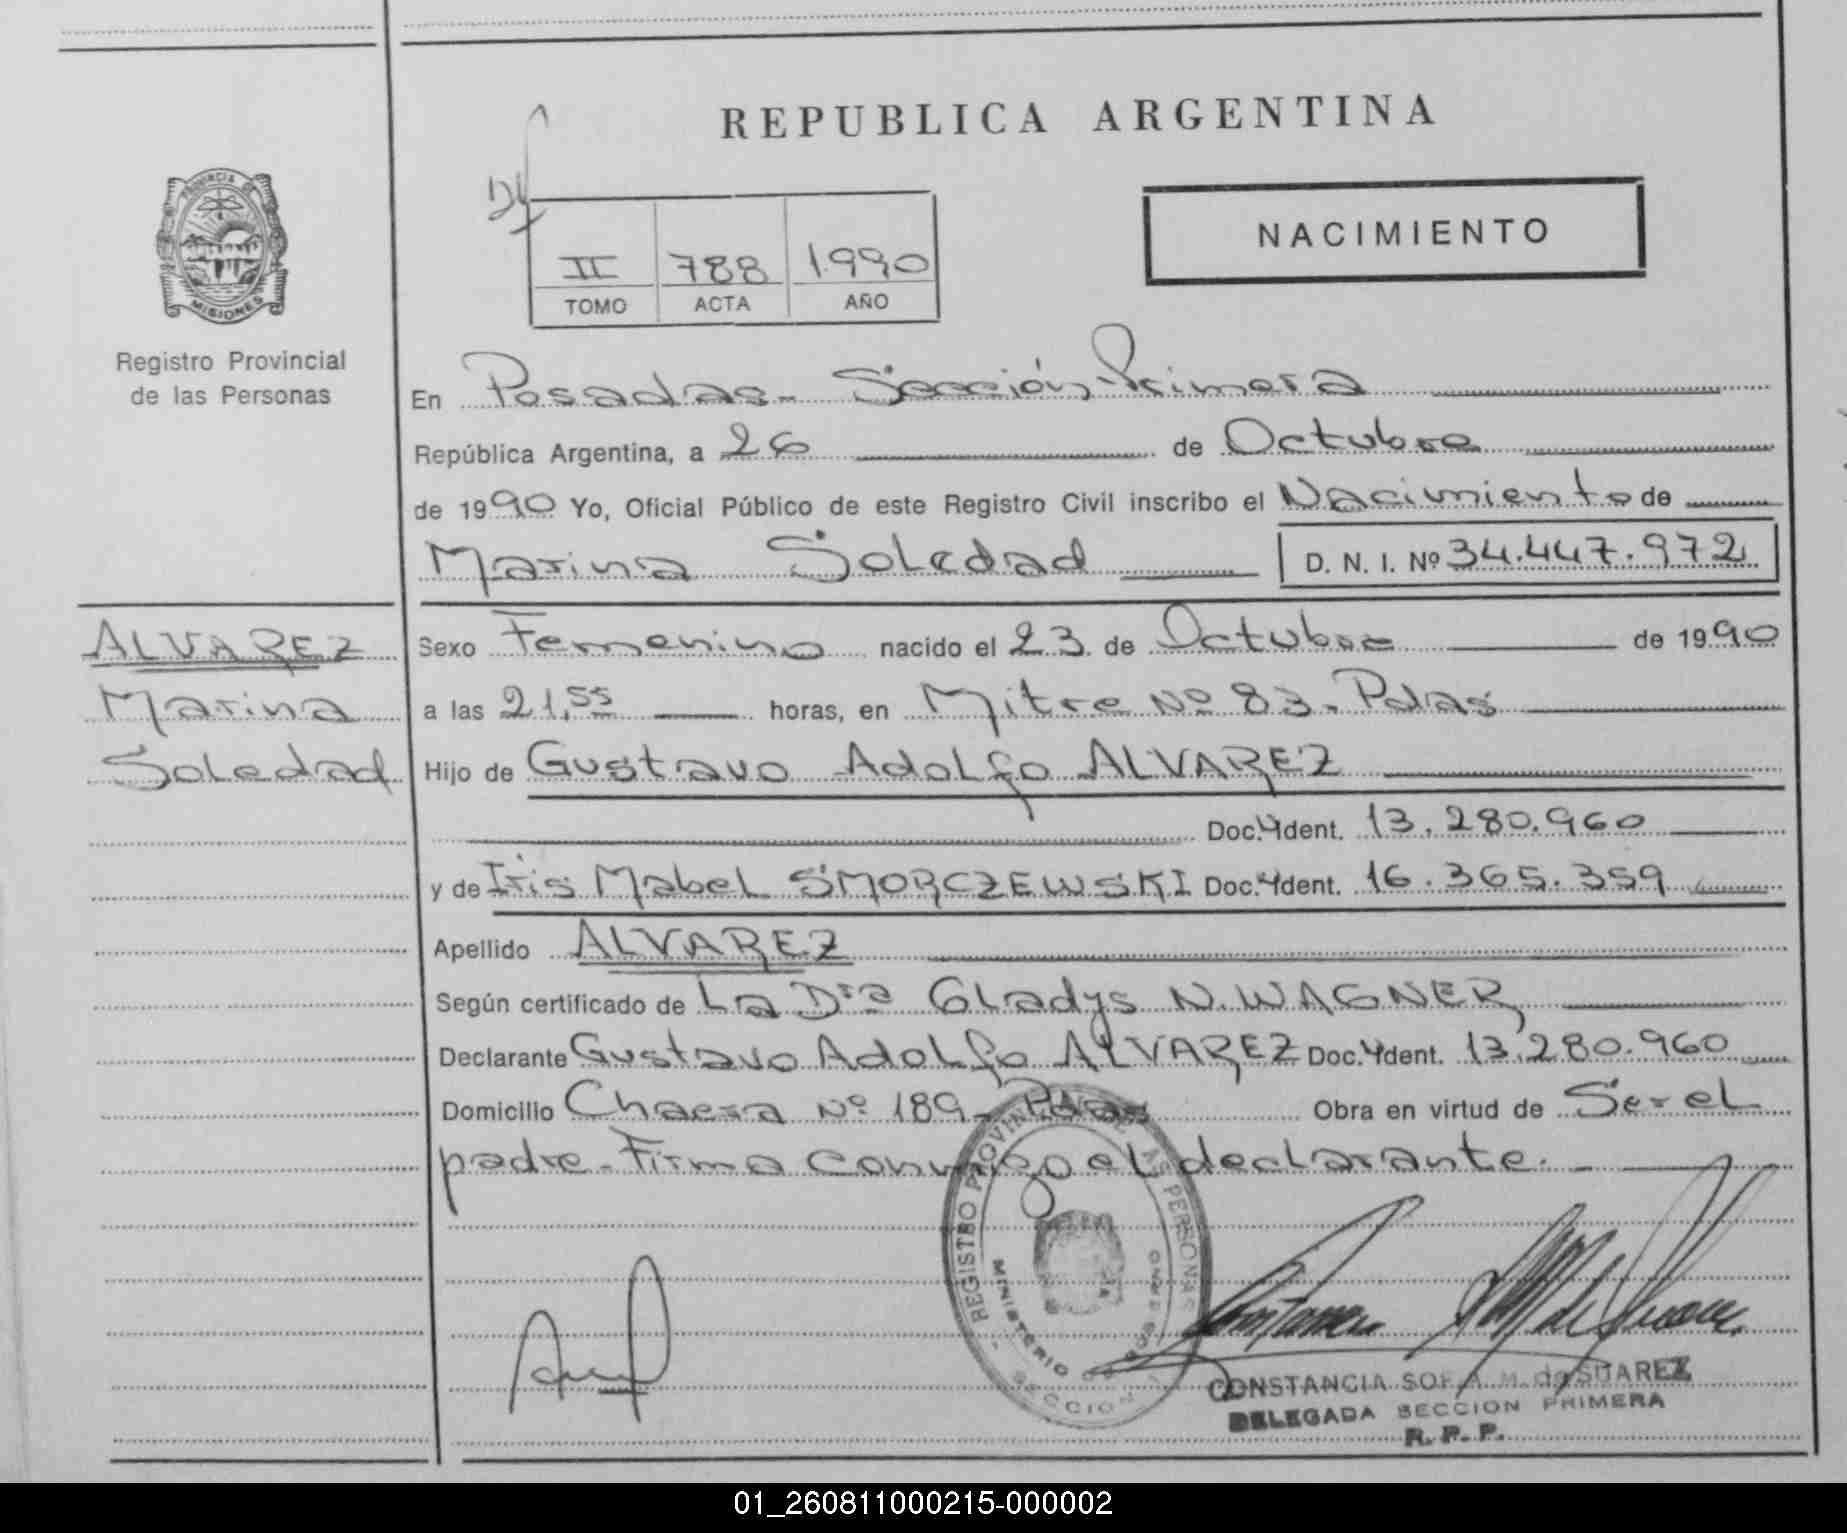 REPUBLICA ARGENTINA
PROVINCIA DE
MISIONES
Registro Provincial
de las Personas
II 788 1990
TOMO ACTA AÑO
NACIMIENTO
En Posadas - Sección Primera
República Argentina, a 26 de Octubre
de 1990 Yo, Oficial Público de este Registro Civil inscribo el Nacimiento de
Marina Soledad D. N. I. Nº 34.447.972
ALVAREZ
Marina
Soledad
Sexo Femenino nacido el 23 de Octubre de 1990
a las 21,55 horas, en Mitre Nº 83 - Pdas
Hijo de Gustavo Adolfo ALVAREZ
Doc. Ident. 13.280.960
y de Iris Mabel SMORCZEWSKI Doc. Ident. 16.365.359
Apellido ALVAREZ
Según certificado de La Dra Gladys N. WAGNER
Declarante Gustavo Adolfo ALVAREZ Doc. Ident. 13.280.960
Domicilio Chacra Nº 189 - Pdas Obra en virtud de Ser el
padre - Firma conmigo el declarante.
REGISTRO PROVINCIAL DE LAS PERSONAS
MINISTERIO DE GOBIERNO
SECCION
CONSTANCIA SOFIA M. de SUAREZ
DELEGADA SECCION PRIMERA
R. P. P.
01_260811000215-000002